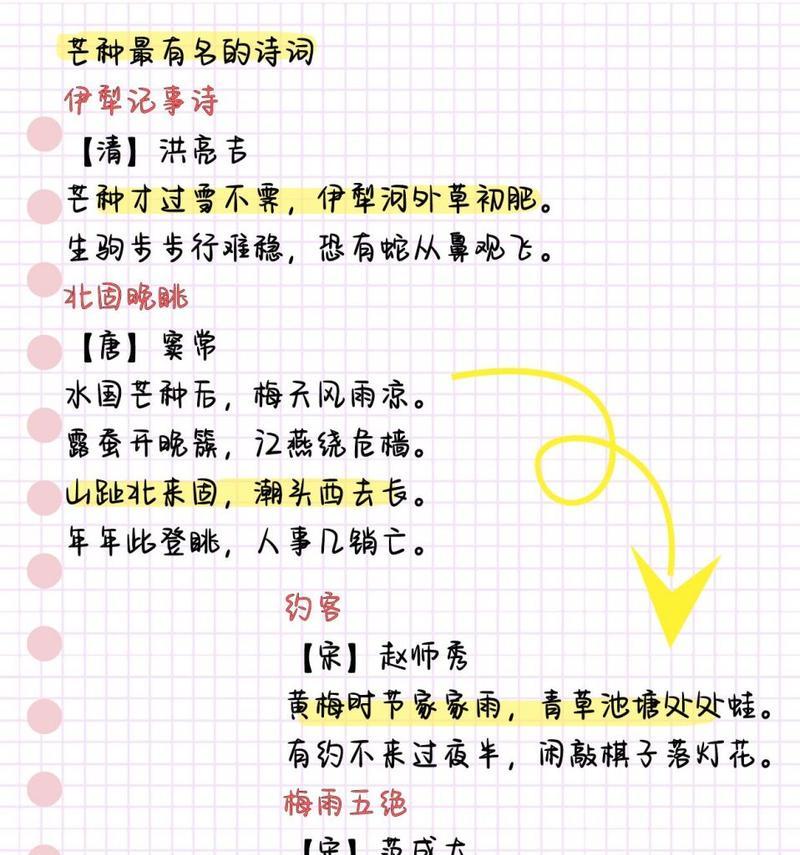 芒种最有名的诗词
伊犁记事诗
【清】洪亮吉
芒种才过雪不霁，伊犁河外草初肥。
生驹步步行难稳，恐有蛇从鼻观飞。
北固晚眺
【唐】窦常
水国芒种后，梅天风雨凉。
露蚕开晚簇，江燕绕危樯。
山趾北来固，潮头西去长。
年年此登眺，人事几销亡。
约客
【宋】赵师秀
黄梅时节家家雨，青草池塘处处蛙。
有约不来过夜半，闲敲棋子落灯花。
梅雨五绝
【宋】范成大